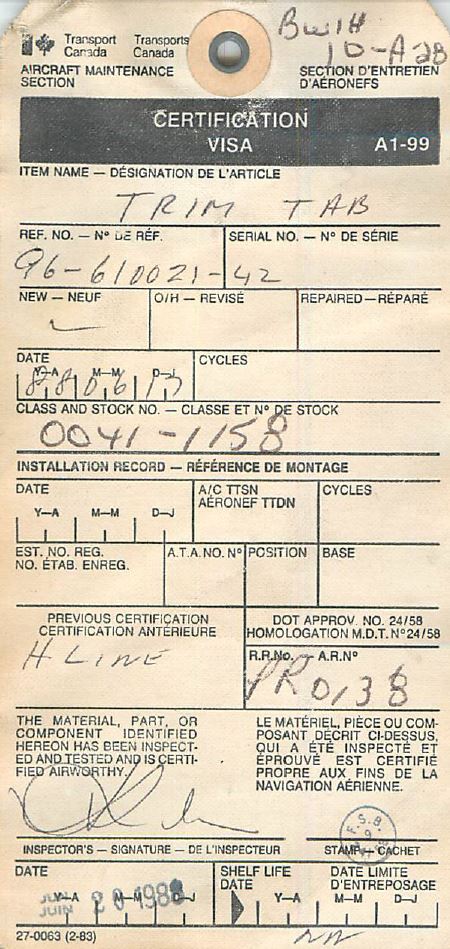 BW1H
10-A2B
Transport Canada Transports Canada
AIRCRAFT MAINTENANCE SECTION SECTION D'ENTRETIEN D'AÉRONEFS
CERTIFICATION
VISA A1-99
ITEM NAME — DÉSIGNATION DE L'ARTICLE
TRIM TAB
REF. NO. — Nº DE RÉF. SERIAL NO. — Nº DE SÉRIE
96-610021-42
NEW — NEUF O/H — REVISÉ REPAIRED — RÉPARÉ
DATE CYCLES
Y—A M—M D—J
CLASS AND STOCK NO. — CLASSE ET Nº DE STOCK
0041-1158
INSTALLATION RECORD — RÉFÉRENCE DE MONTAGE
DATE A/C TTSN AÉRONEF TTDN CYCLES
Y—A M—M D—J
EST. NO. REG. NO. ÉTAB. ENREG. A.T.A. NO. Nº POSITION BASE
PREVIOUS CERTIFICATION CERTIFICATION ANTÉRIEURE
H LINE
DOT APPROV. NO. 24/58
HOMOLOGATION M.D.T. Nº 24/58
R.R.No. — A.R.Nº
PR0138
THE MATERIAL, PART, OR
COMPONENT IDENTIFIED
HEREON HAS BEEN INSPECT-
ED AND TESTED AND IS CERTI-
FIED AIRWORTHY.
LE MATÉRIEL, PIÈCE OU COM-
POSANT DÉCRIT CI-DESSUS,
QUI A ÉTÉ INSPECTÉ ET
ÉPROUVÉ EST CERTIFIÉ
PROPRE AUX FINS DE LA
NAVIGATION AÉRIENNE.
INSPECTOR'S — SIGNATURE — DE L'INSPECTEUR STAMP — CACHET
DATE SHELF LIFE DATE DATE LIMITE D'ENTREPOSAGE
Y—A M—M D—J Y—A M—M D—J
JUIN 20 1988
27-0063 (2-83)